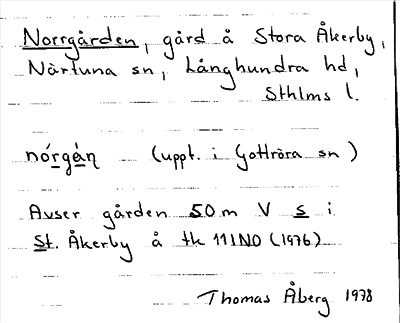 Norrgården, gård å Stora Åkerby,
Närtuna sn, Långhundra hd,
Sthlms l.
nórgá̀n (uppt. i Gottröra sn)
Avser gården 50 m V s i
St. Åkerby å tk 11I NO (1976)
Thomas Åberg 1978